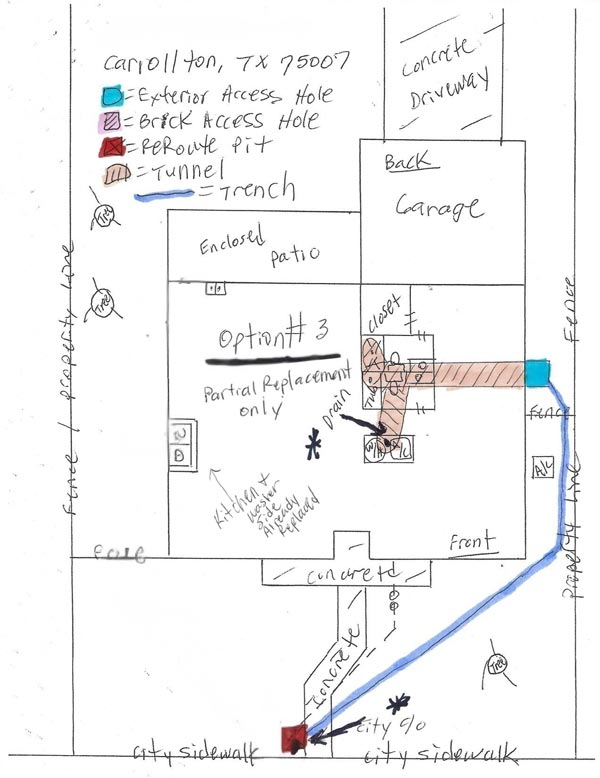 Carrollton, TX 75007
= Exterior Access Hole
= Brick Access Hole
= ReRoute Pit
= Tunnel
= Trench
Concrete
Driveway
Back
Garage
Tree
Tree
Enclosed
Patio
Closet
Option# 3
Partial Replacement
only
Tub
Drain
Kitchen +
washer
side
Already
Replaced
Fence / Property Line
Fence
Fence
A/C
Property Line
Fence
Front
Concrete
Concrete
Tree
City c/o
City Sidewalk
City Sidewalk